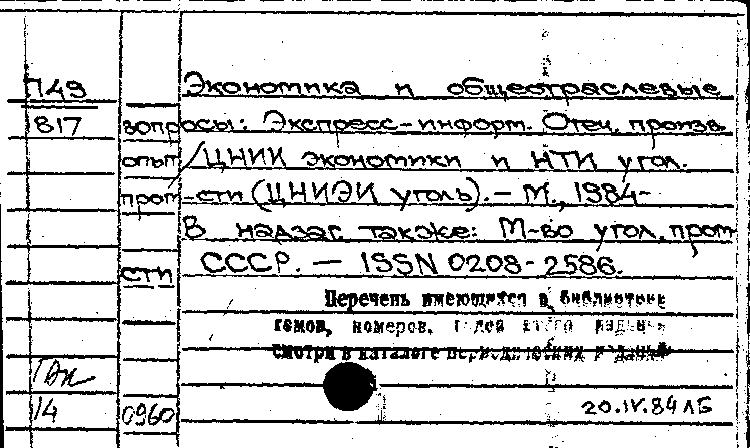 П49 Экономика и общеотраслевые
817 вопросы: Экспресс-информ. Отеч. произв.
опыт/ЦНИИ экономики и НТИ угол.
пром-сти (ЦНИЭИ уголь). – М., 1984-
В надзаг. также: М-во угол. пром-
сти СССР. – ISSN 0208-2586.
Перечень имеющихся в библиотеке
томов, номеров, годов этого издания
смотри в каталоге периодических изданий
14 0960 20.IV.84 ЛБ